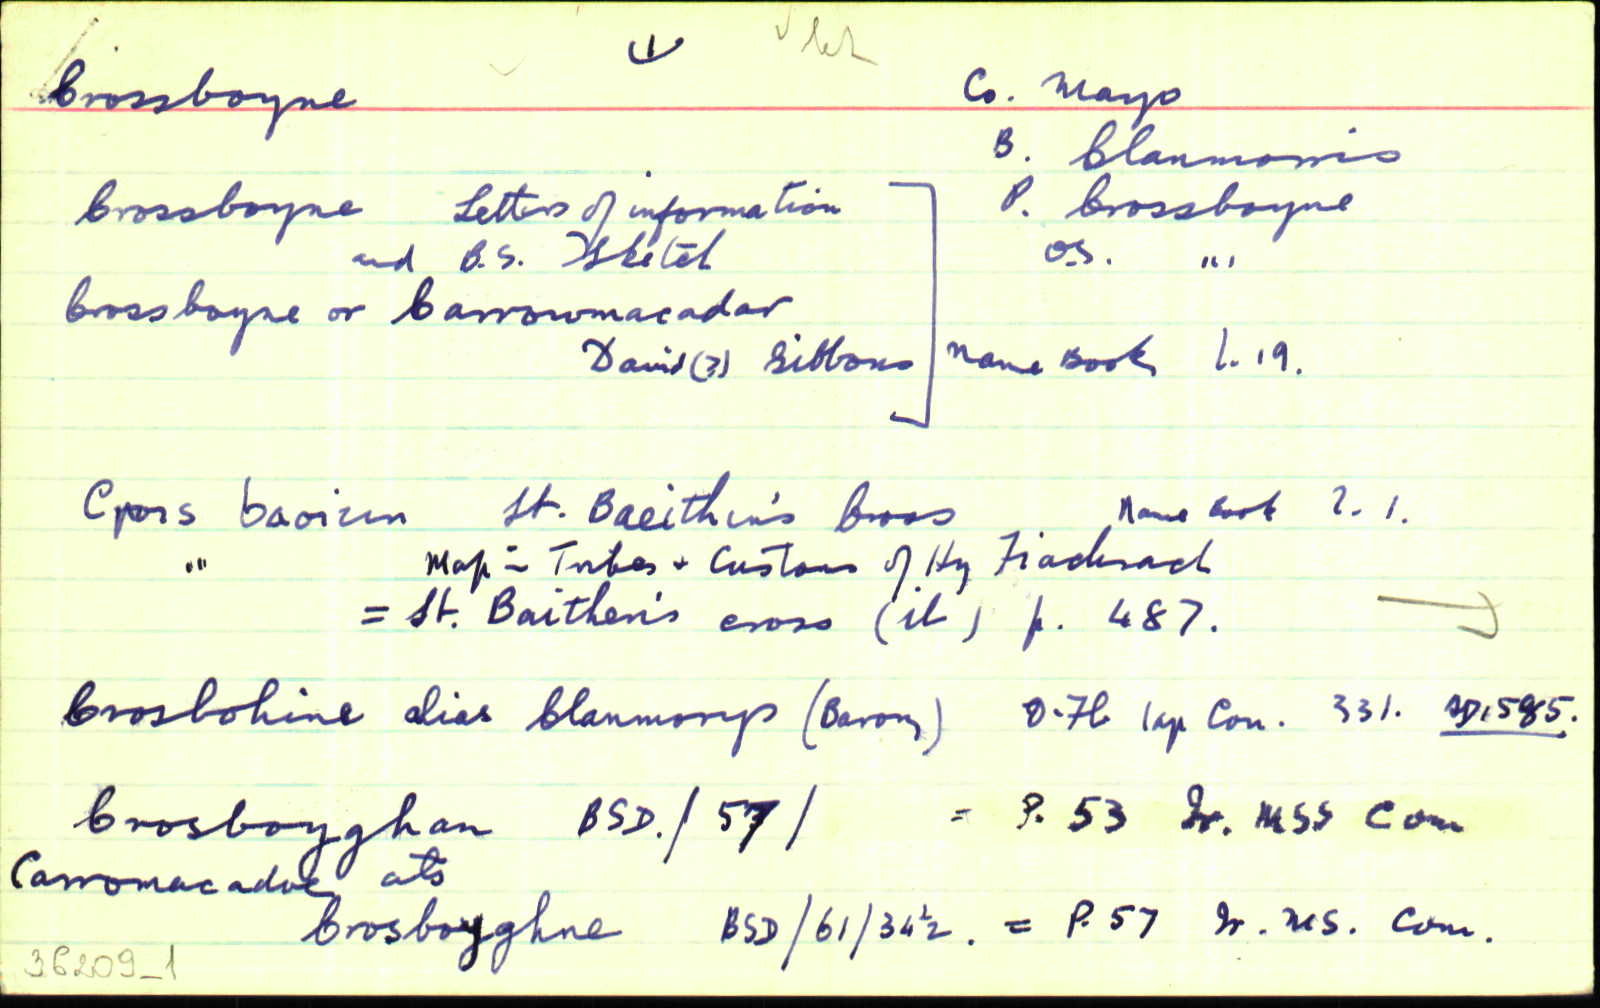 Crossboyne Co. Mayo
B. Clanmorris
Crossboyne Letters of information P. Crossboyne
and B.S. Sketch O.S. "
Crossboyne or Carrowmacadar
David (?) Gibbons Name Book l. 19.
Cros baoitin St. Baeithin's Cross Name Book l. 1.
" Map = Tribes + Customs of Hy Fiachrach
= St. Baithen's cross (ib) p. 487.
Crosbohine alias Clanmorys (Barony) Con. 331. AD. 1585.
Crosboyghan BSD. / 57 / = P. 53 Ir. MSS Com
Carromacadoe als
Crosboyghne BSD / 61 / 34½. = P. 57 Ir. MS. Com.
36209_1